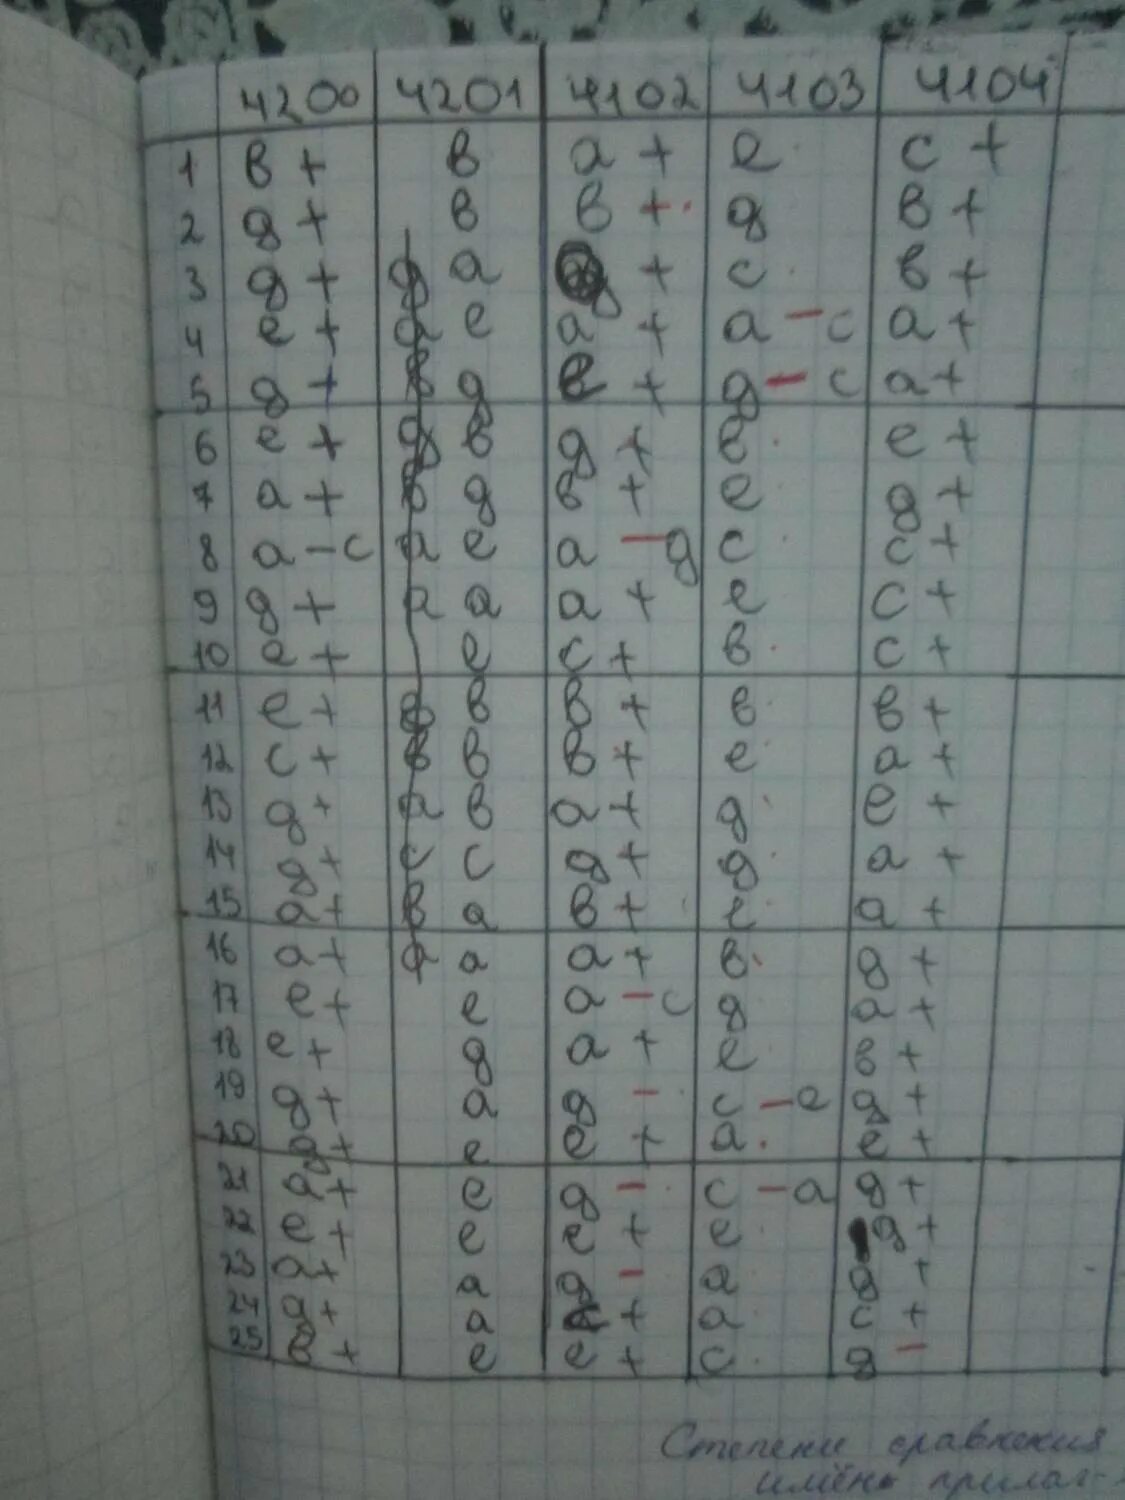 4200 4201 4102 4103 4104
1 в + в a + e c +
2 g + в в + g в +
3 g + g a g + c в +
4 e + a e a + a - c a +
5 g + в g e + g - c a +
6 e + g в g + в e +
7 a + в g в + e g +
8 a - c a e a - g c c +
9 g + a a a + e c +
10 e + e c + в c +
11 e + g в в + в в +
12 c + в в в + e a +
13 g + a в a + g e +
14 g + c c g + g a +
15 a + в a в + e a +
16 a + a a a + в g +
17 e + e a - c g a +
18 e + g a + e в +
19 g + a g - c - e g +
20 g + e e + a e +
21 a + e g - c - a g +
22 e + e e + e g +
23 a + a g - a g +
24 g + a + a c +
25 в + e e + c g -
Степени сравнения
имён прилаг-